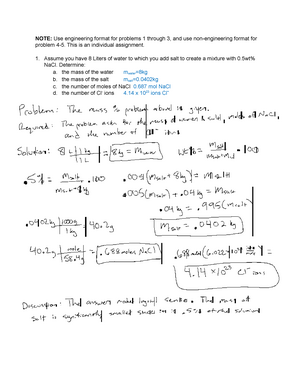 NOTE: Use engineering format for problems 1 through 3, and use non-engineering format for
problem 4-5. This is an individual assignment.
1. Assume you have 8 Liters of water to which you add salt to create a mixture with 0.5wt%
NaCl. Determine:
a. the mass of the water m_water=8kg
b. the mass of the salt m_salt=0.0402kg
c. the number of moles of NaCl 0.687 mol NaCl
d. the number of Cl⁻ ions 4.14 x 10²³ ions Cl⁻
Problem: The mass % problem above is given.
Required: The problem asks for the mass of water & salt, moles of NaCl,
and the number of Cl⁻ ions
Solution: 8 L | 1 kg / 1 L = 8kg = m_water wt% = m_salt / m_salt+m_ · 100
.5% = m_salt / m_salt+8kg · 100 .005(m_salt + 8kg) = m_salt
.005(m_salt) + .04 kg = m_salt
.04 kg = .995(m_salt)
.0402 kg | 1000g / 1 kg | 40.2g m_salt = .0402 kg
40.2g | 1 mole / 58.4g | = .688 moles NaCl .688 mol (6.022x10²³) =
4.14 x 10²³ Cl⁻ ions
Discussion: The answers make logical sense. The mass of
salt is significantly smaller since it is .5% of the solution